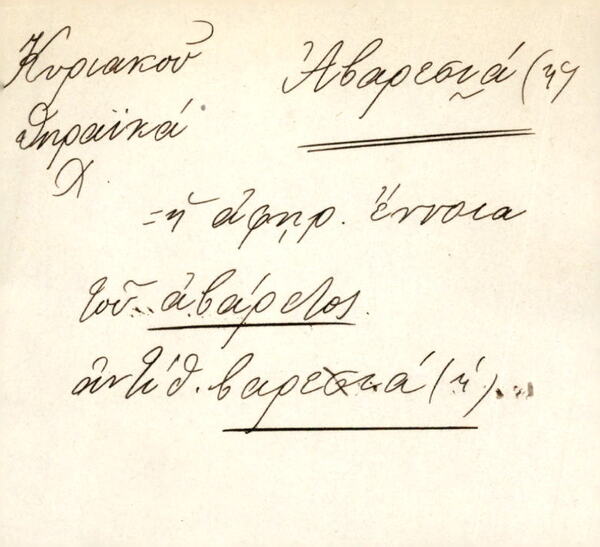 Κυριακοῦ
Θηραϊκά
Χ.
Ἀβαρεσιά (ἡ)
= ἡ ἀφῃρ. ἔννοια
τοῦ ἀβάρετος.
ἀντίθ. βαρεσιά (ἡ)